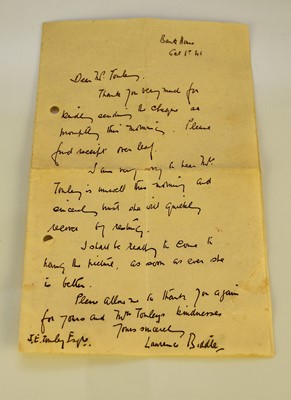 Bank House
Oct 1st 41
Dear Mr Tonley,
Thank you very much for
kindly sending the cheque so
promptly this morning. Please
find receipt over leaf.
I am very sorry to hear Mrs
Tonley is unwell this morning and
sincerely trust she will quickly
recover by resting.
I shall be ready to come to
hang the picture, as soon as ever she
is better.
Please allow me to thank you again
for yours and Mrs Tonley's kindnesses
Yours sincerely
J.E. Tonley Esqre. Laurence Biddle